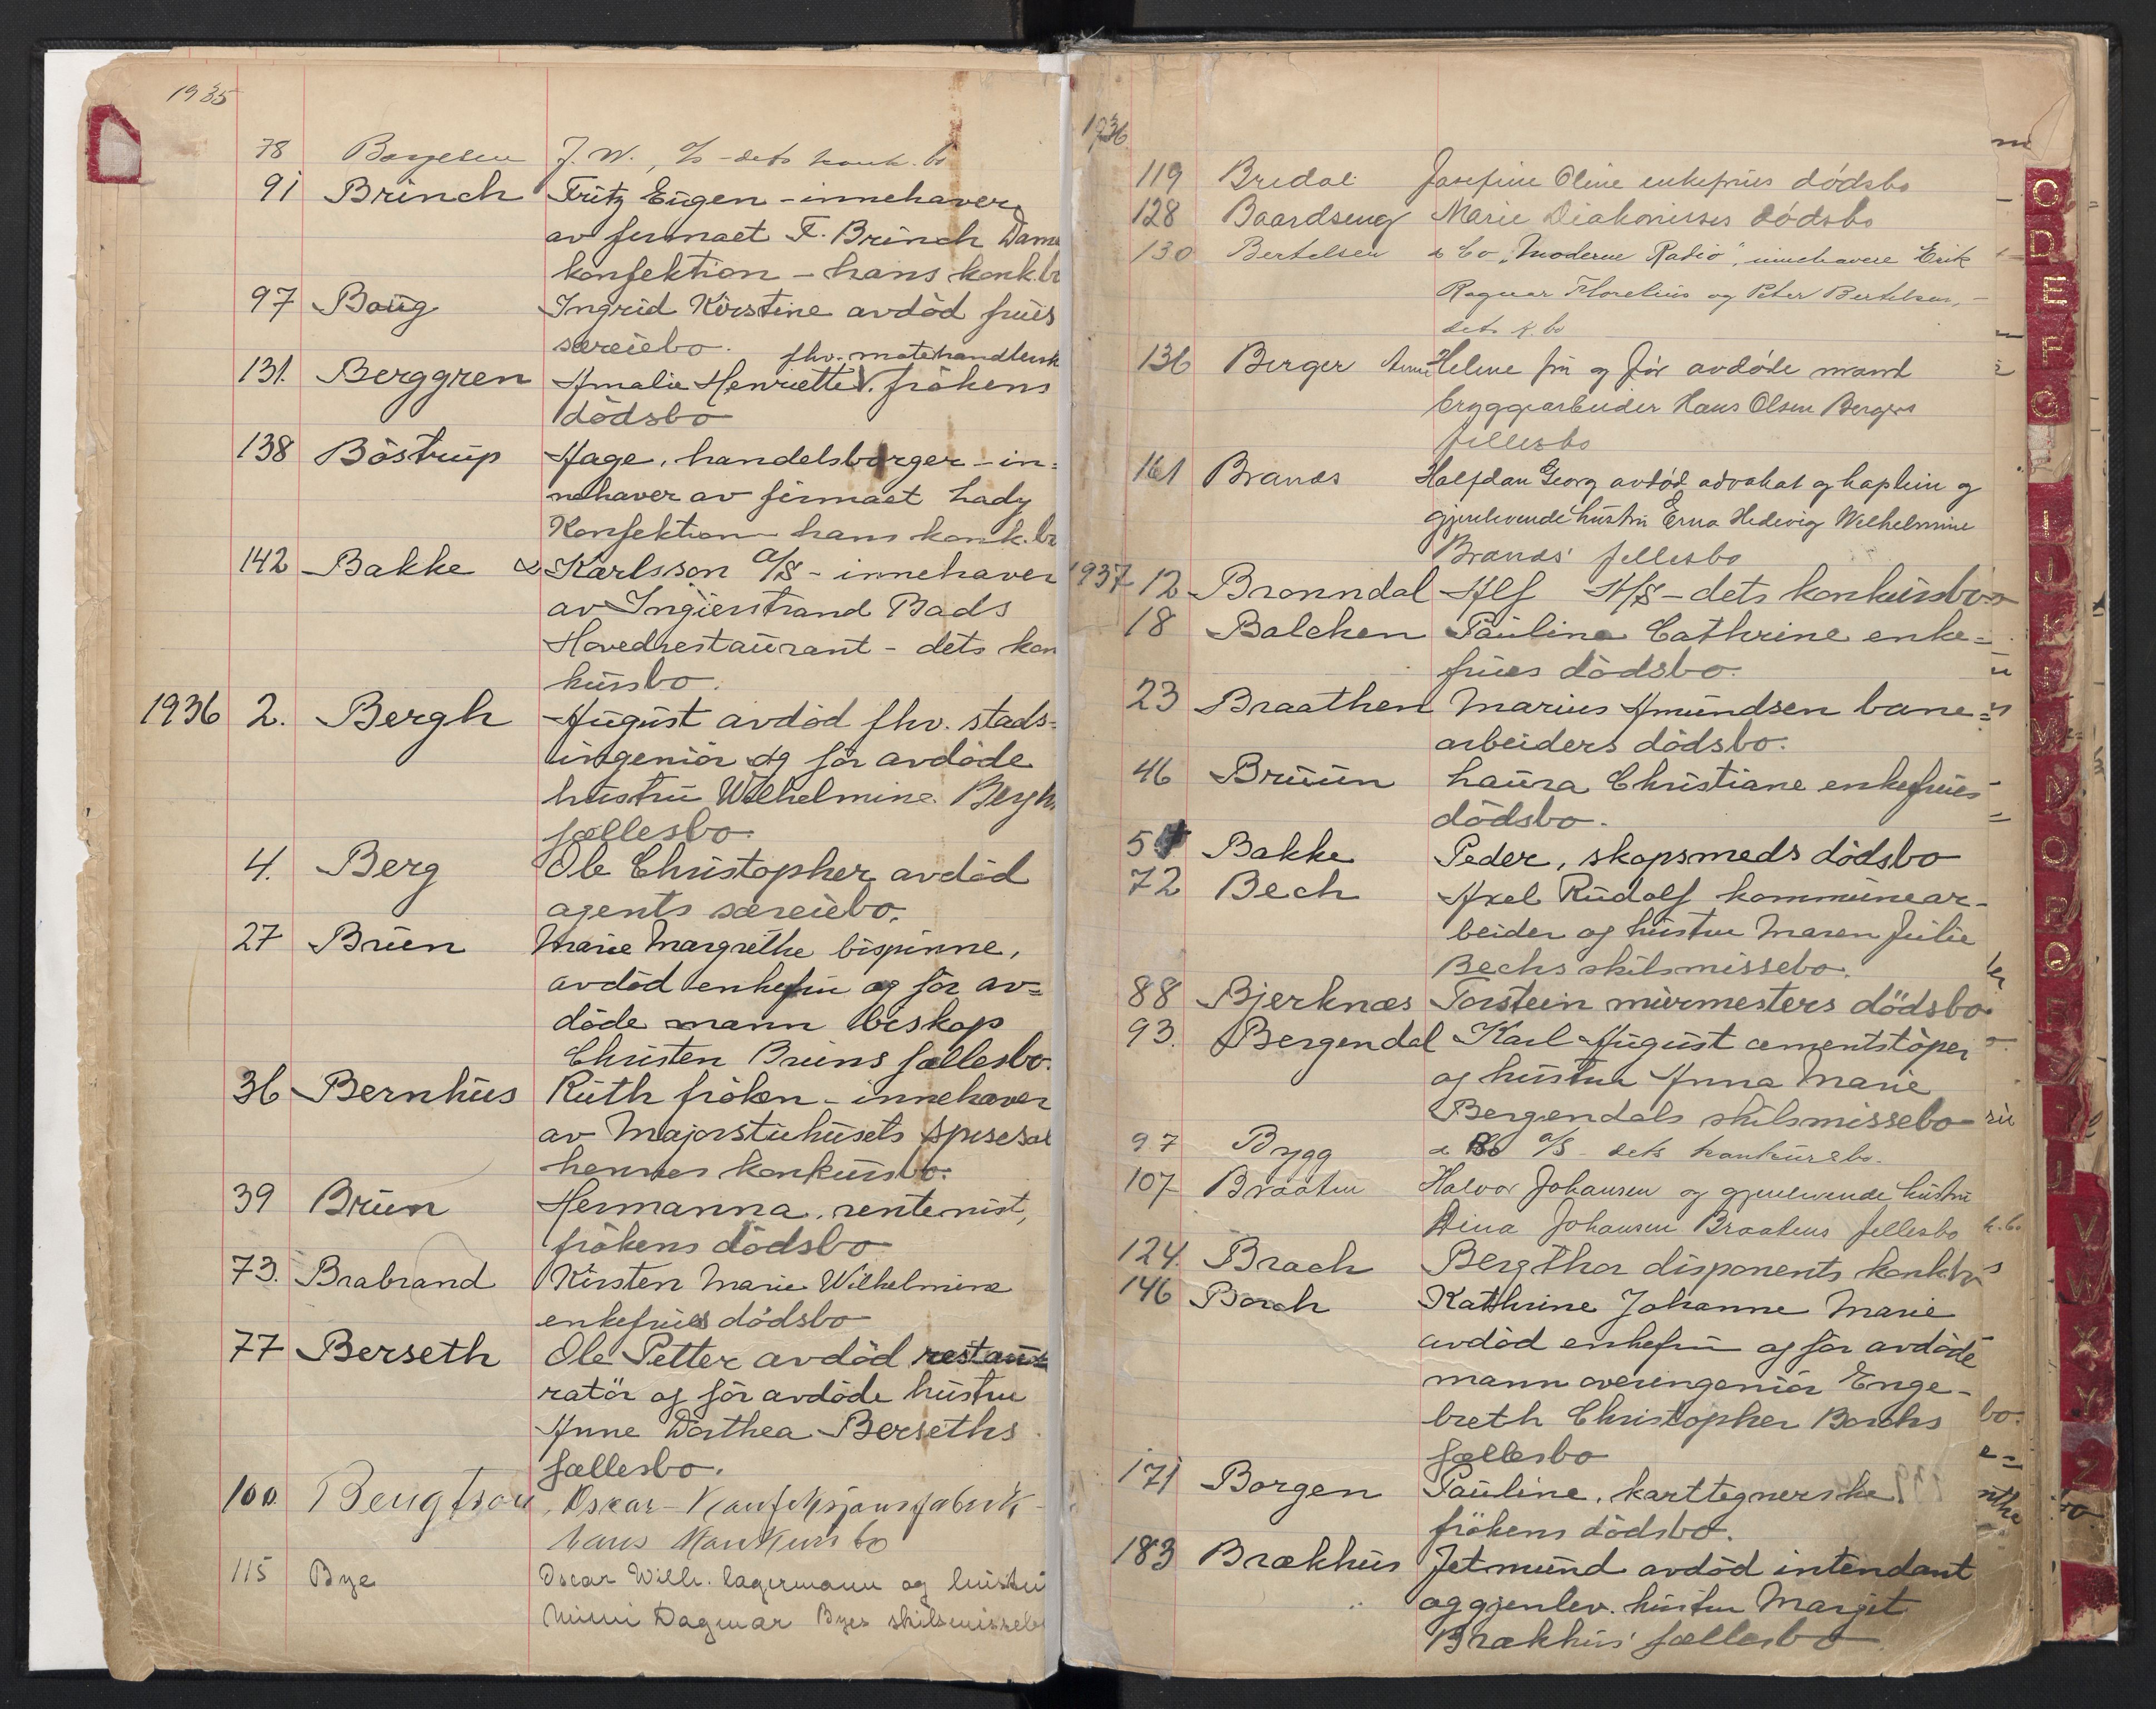 1935
78 Børgesen J. W., A/S - dets konk. bo
91 Brinch Fritz Eugen - innehaver
av firmaet F. Brinch Dame
konfektion - hans konk.bo
97 Boug Ingrid Kirstine avdød frues
særeiebo. fhv. motehandlersk
131. Berggren Amalie Henriette V. frøkens
dødsbo
138 Bøstrup Aage, handelsborger - in=
nehaver av firmaet Lady
Konfektion hans konk. bo
142 Bakke & Karlsson A/S - innehaver
av Ingierstrand Bads
Hovedrestaurant - dets kon
kursbo.
1936 2. Bergh August avdød fhv. stads=
ingeniør og før avdøde
hustru Wilhelmine Bergh
fællesbo.
4. Berg Ole Christopher avdød
agents særeiebo.
27 Brun Marie Margrethe bispinne,
avdød enkefru og før av=
døde mann biskop
Christen Bruns fællesbo.
36 Bernhus Ruth frøken - innehaver
av Majorstuhusets spisesal
hennes konkursbo.
39 Brun Hermanna, rentenist,
frøkens dødsbo
73. Brabrand Kirsten Marie Wilhelmine
enkefrues dødsbo
77 Berseth Ole Petter avdød restau=
ratør og før avdøde hustru
Anne Dorthea Berseths
fællesbo.
100 Bengtson, Oskar - Konfeksjonsfabrik -
hans konkursbo
115 Bye Oscar Wilh. lagermann og hustru
Mimi Dagmar Byes skilsmissebo
1936
119 Bredal Josefine Oline enkefrues dødsbo
128 Baardseng Marie Diakonisses dødsbo
130 Bertelsen & Co "Moderne Radio", innehavere Erik
Ragnar Thorelius og Peter Bertelsen,
dets k. bo
136 Berger Anne Helene fru og før avdøde mand
bryggearbeider Hans Olsen Bergers
fellesbo
161 Brands Halfdan Georg avdød advokat og kaptein og
gjenlevende hustru Erna Hedevig Wilhelmine
Brands' fellesbo
1937 12 Bronndal Alf A/S - dets konkursbo
18 Balchen Pauline Cathrine enke=
frues dødsbo.
23 Braathen Marius Amundsen bane=
arbeiders dødsbo.
46 Bruun Laura Christiane enkefrues
dødsbo.
5 Bakke Peder, skapsmeds dødsbo
72 Bech Axel Rudolf kommunear-
beider og hustru Maren Julie
Bechs skilsmissebo.
88 Bjerknæs Torstein murmesters dødsbo
93. Bergendal Karl August cementstøper
og hustru Anna Marie
Bergendals skilsmissebo
97 Bygg & Bo A/S - dets konkursbo.
107 Braaten Halvor Johansen og gjenlevende hustru
Dina Johansen Braatens fellesbo
124. Brach Bergthor disponents konk.bo
146 Borch Kathrine Johanne Marie
avdød enkefru og før avdøde
mann overingeniør Enge-
breth Christopher Borchs
fællesbo
171 Borgen Pauline, karttegnerske
frøkens dødsbo.
183 Brækhus Jetmund avdød intendant
og gjenlev. hustru Margit
Brækhus' fællesbo
C
D
E
F
G
I
J
K
M
N
O
P
Q
V
W
X
Y
Z